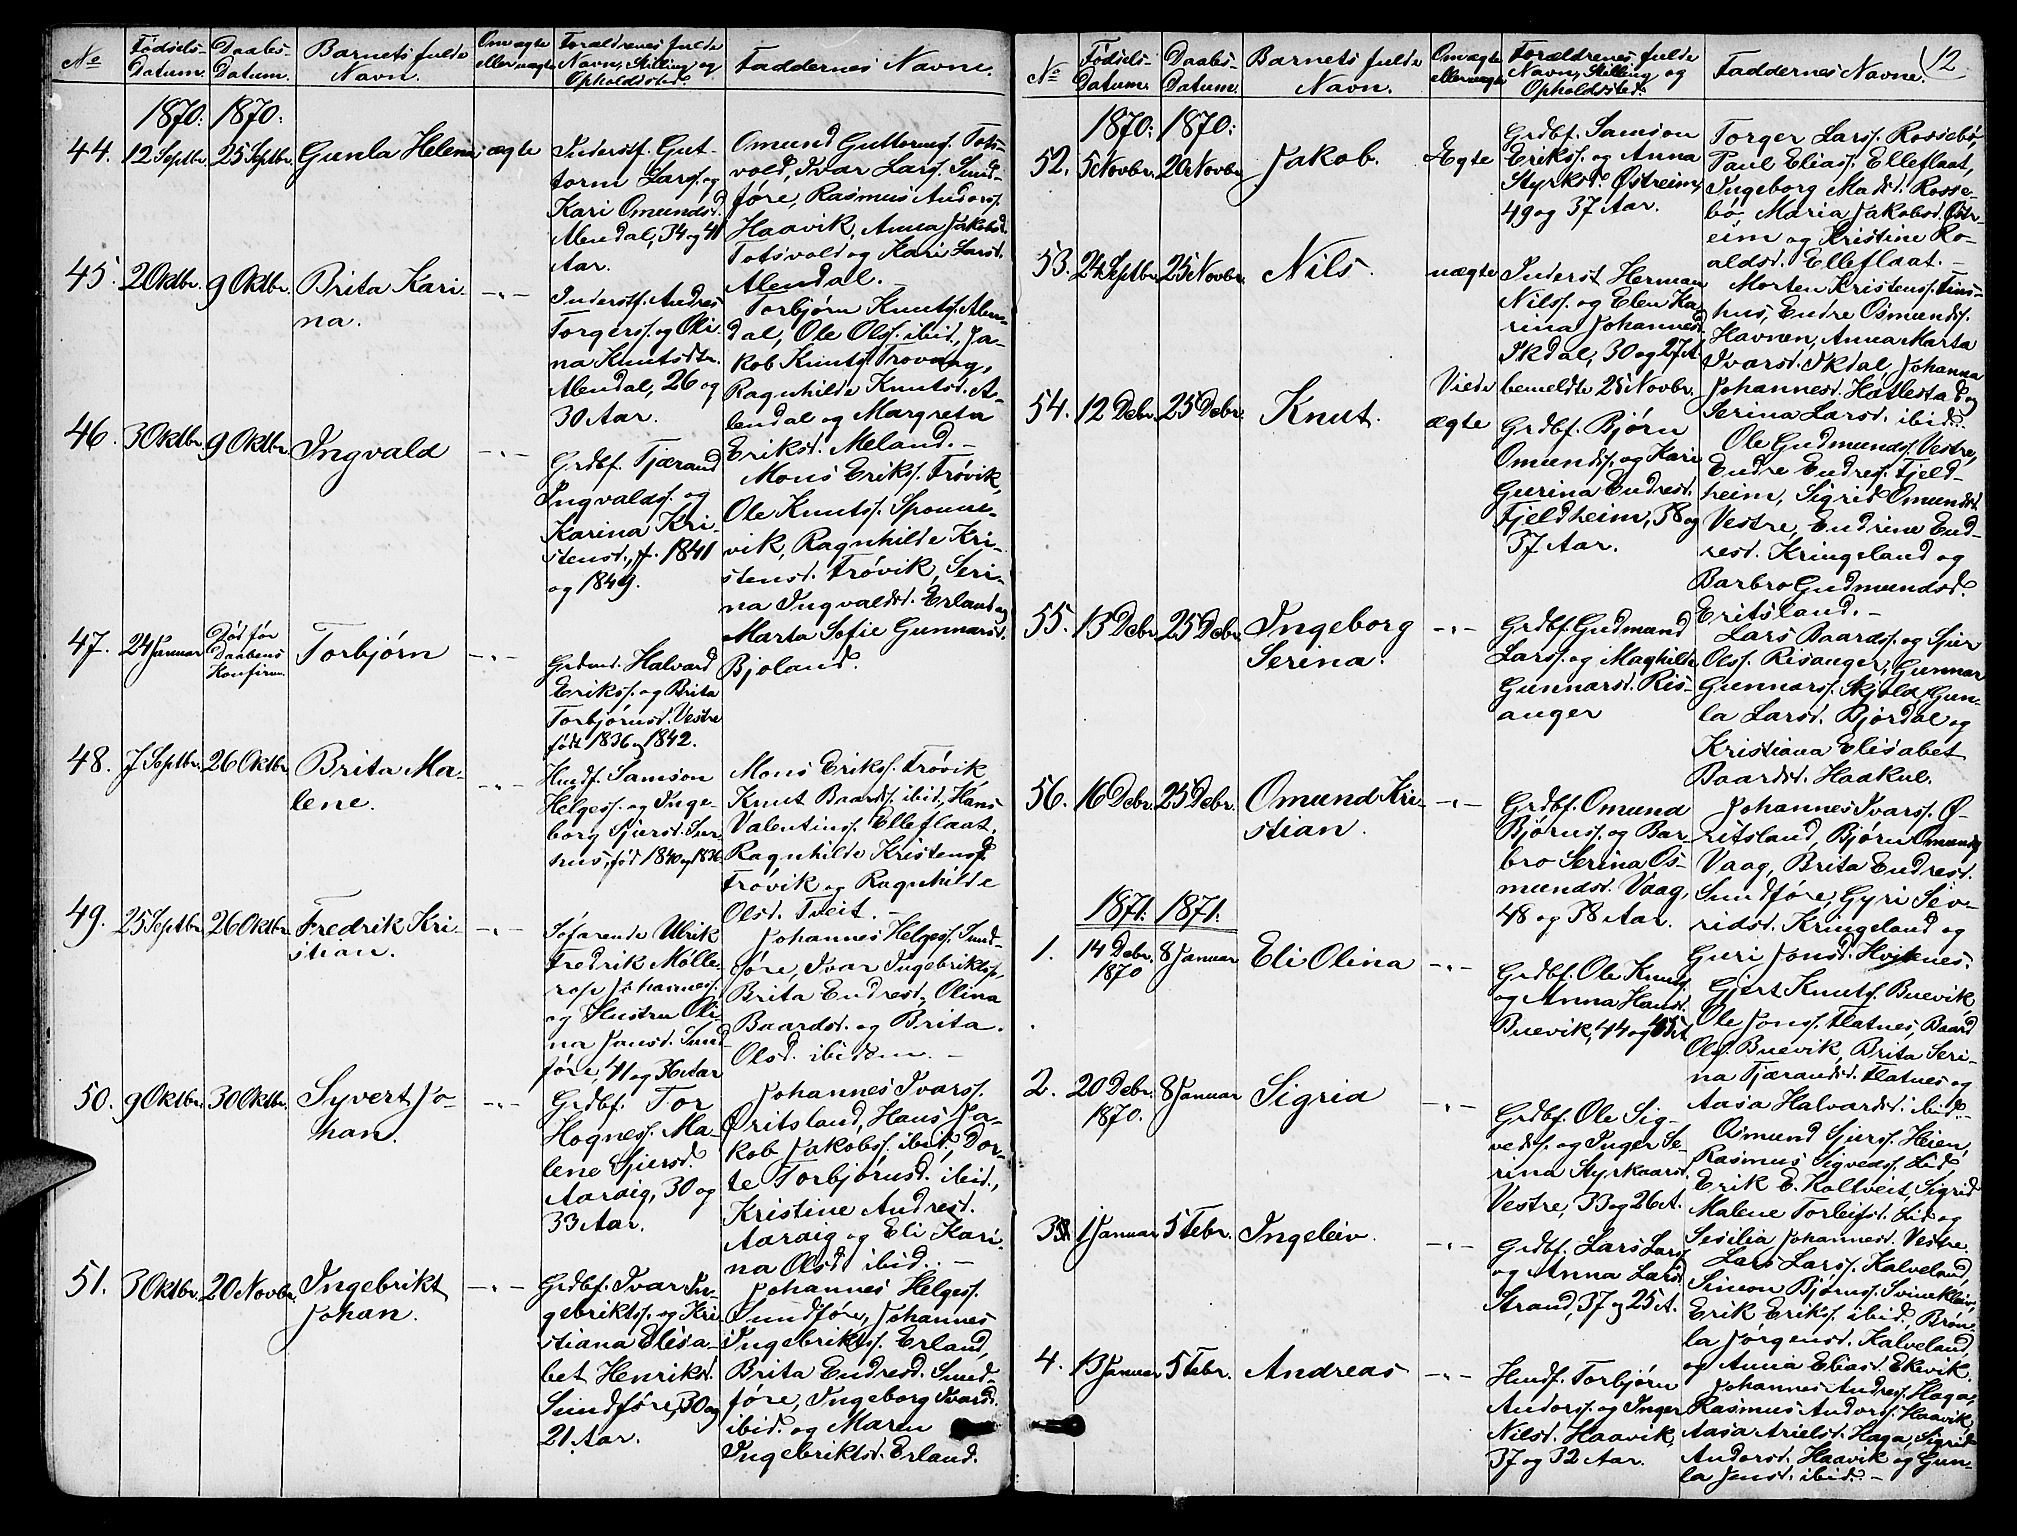 No
Fødsels-
Datum.
Daabs-
Datum.
Barnets fulde
Navn.
Om ægte
eller uægte
Forældrenes fulde
Navn, Stilling og
Opholdssted.
Faddernes Navne.
1870: 1870:
44. 12 Septbr. 25 Septbr. Gunla Helena ægte
Inderstf. Gut-
torm Larss. og
Kari Omundsd.
Alendal, 34 og 41
Aar.
Omund Guttorms. Tots-
vold, Ivar Larss. Sund-
føre, Rasmus Anders.
Haavik, Anna Jakobsd.
Totsvold og Kari Larsd.
Alendal. –
45. 2 Oktbr. 9 Oktbr. Brita Kari-
na. –"–
Inderstf. Andres
Torgerss. og Oli-
na Knutsdtr.
Alendal, 26 og
30 Aar.
Torbjørn Knuts. Alen-
dal, Ole Ols. ibid, Ja-
kob Knuts. Trovaag,
Ragnhilde Knutsd. A-
lendal og Margreta
Eriksd. Meland. –
46. 3 Oktbr. 9 Oktbr. Ingvald –"–
Grdbf. Tjærand
Ingvalds. og
Karina Kri-
stensd., f. 1841
og 1849.
Mons Erikss. Frøvik,
Ole Knutss. Sponne-
vik, Ragnhilde Kri-
stensd. Frøvik, Seri-
na Ingvaldsd. Erland og
Marta Sofie Gunnarsd.
Bjoland.
47. 24 Januar Død før
Daabens
Konfirm. Torbjørn –"–
Grdmd. Halvard
Erikss. og Brita
Torbjørnsd. Vestre
født 1836 og 1842.
48. 7 Septbr. 26 Oktbr. Brita Ma-
lene. –"–
Husmf. Samson
Helgess. og Inge-
borg Sjursd. Sur-
hus, fød 1840 og 1836.
Mons Erikss. Frøvik,
Knut Baards. ibid, Hans
Valentins. Elleflaat,
Ragnhilde Kristensd.
Frøvik og Ragnhilde
Olsd. Tveit. –
49. 25 Septbr. 26 Oktbr. Fredrik Kri-
stian. –"–
Søfarende Ulrik
Fredrik Mølle-
rop Johannes.
og Hustru Oli-
na Jansd. Sund-
føre, 41 og 36 Aar
Johannes Helgess. Sund-
føre, Ivar Ingebrikts.,
Brita Endresd., Olina
Baardsd. og Brita
Olsd. ibidem. –
50. 9 Oktbr. 30 Oktbr. Syvert Jo-
han. –"–
Grdbf. Tor
Hogness. Ma-
lene Sjursd.
Aaraig, 30 og
33 Aar.
Johannes Ivarss.
Øritsland, Hans Ja-
kob Jakobss. ibid, Dor-
te Torbjørnsd. ibid.,
Kristine Andresd.
Aaraig og Eli Kari-
na Olsd. ibid. –
51. 3 Oktbr. 20 Novbr. Ingebrikt
Johan. –"–
Grdbf. Ivar In-
gebriktss. og Kri-
stiana Elisa-
bet Henriksd.
Sundføre, 30 og
21 Aar.
Johannes Helgess.
Sundføre, Johannes
Ingebriktss. Erland,
Brita Endresd. Sund-
føre, Ingeborg Ivarsd.
ibid. og Maren
Ingebriktsd. Erland.
12
No
Fødsels-
Datum.
Daabs-
Datum.
Barnets fulde
Navn.
Om ægte
eller uægte
Forældrenes fulde
Navn, Stilling og
Opholdssted:
Faddernes Navne.
1870: 1870:
52. 5 Novbr. 20 Novbr. Jakob. Ægte
Grdbf. Samson
Erikss. og Anna
Styrksd. Østreim,
49 og 37 Aar.
Torger Larss. Rossebø,
Paul Elias. Elleflaat,
Ingeborg Madsd. Rosse-
bø, Maria Jakobsd. Øst-
reim og Kristine Ro-
aldsd. Elleflaat. –
53. 24 Septbr. 25 Novbr. Nils. uægte
Inderst Herman
Nilss. og Elen Ka-
rina Johannesd.
Ikdal, 30 og 27 A.
Viede bemeldte 25 Novbr.
Morten Kristenss. Fins-
hus, Endre Osmunds.
Havnen, Anna Marta
Ivarsd. Ikdal, Johanna
Johannesd. Hatlestad og
Serina Larsd. ibid.
54. 12 Debr. 25 Debr. Knut. ægte
Grdbf. Bjørn
Omunds. og Kari
Gurina Endresd.
Fjeldheim, 38 og
37 Aar.
Ole Gudmunds. Vestre,
Endre Endres. Fjeld-
heim, Sigrid Omundsd.
Vestre, Endrine End-
resd. Kringeland og
Barbro Gudmundsd.
Eritsland. –
55. 13 Debr. 25 Debr. Ingeborg
Serina. –"–
Grdbf. Gudmund
Larss. og Maghilde
Gunnarsd. Ris-
anger
Lars Baardss. og Sjur
Olss. Risanger, Gunnar
Gunnarss. Skjold, Gun-
la Larsd. Bjordal og
Kristiana Elisabet
Baardsd. Haakul.
56. 16 Debr. 25 Debr. Omund Kri-
stian. –"–
Grdbf. Omund
Bjørnss. og Bar-
bro Serina Os-
mundsd. Vaag,
48 og 38 Aar.
Johannes Ivarss. Ø-
ritsland, Bjørn Omunds.
Vaag, Brita Endresd.
Sundføre, Gyri Siv-
ridsd. Kringeland og
Guri Jonsd. Hvitnes.
1871: 1871.
1. 14 Debr.
1870 8 Januar Eli Olina –"–
Grdbf. Ole Knuts.
og Anna Hansd.
Buevik, 44 og
Gjert Knuts. Buevik,
Ole Jonss. Flatnes, Baard
Ols. Buevik, Brita Seri-
na Tjærandsd. Flatnes og
Aasa Halvardsd. ibid. –
2. 20 Debr.
1870. 8 Januar Sigrid –"–
Grdbf. Ole Sig-
veds. og Inger Se-
rina Styrkaarsd.
Vestre, 33 og 26 A.
Osmund Sjurss. Heien,
Rasmus Sigveds. Lid,
Erik E. Koltveit, Sigrid
Malene Torleifsd. Lid og
Sesilia Johannesd. Vestre.
3. 1 Januar 5 Febr. Ingeleiv. –"–
Grdbf. Lars Larss.
og Anna Larsd.
Strand, 37 og 25 A.
Lars Larss. Kalveland,
Simon Bjørns. Svinekleiv,
Erik Erikss. ibid, Brøn-
la Jørgensd. Kalveland,
og Anna Eliasd. Ekevik.
4. 13 Januar 5 Febr. Andreas –"–
Husmf. Torbjørn
Anderss. og Inger
Nilsd. Haavik,
37 og 32 Aar.
Johannes Andres. Haga,
Rasmus Anderss. Haavik,
Aasa Arielsd. Haga, Sigrid
Andersd. Haavik og Gun-
la Jensd. ibid. –